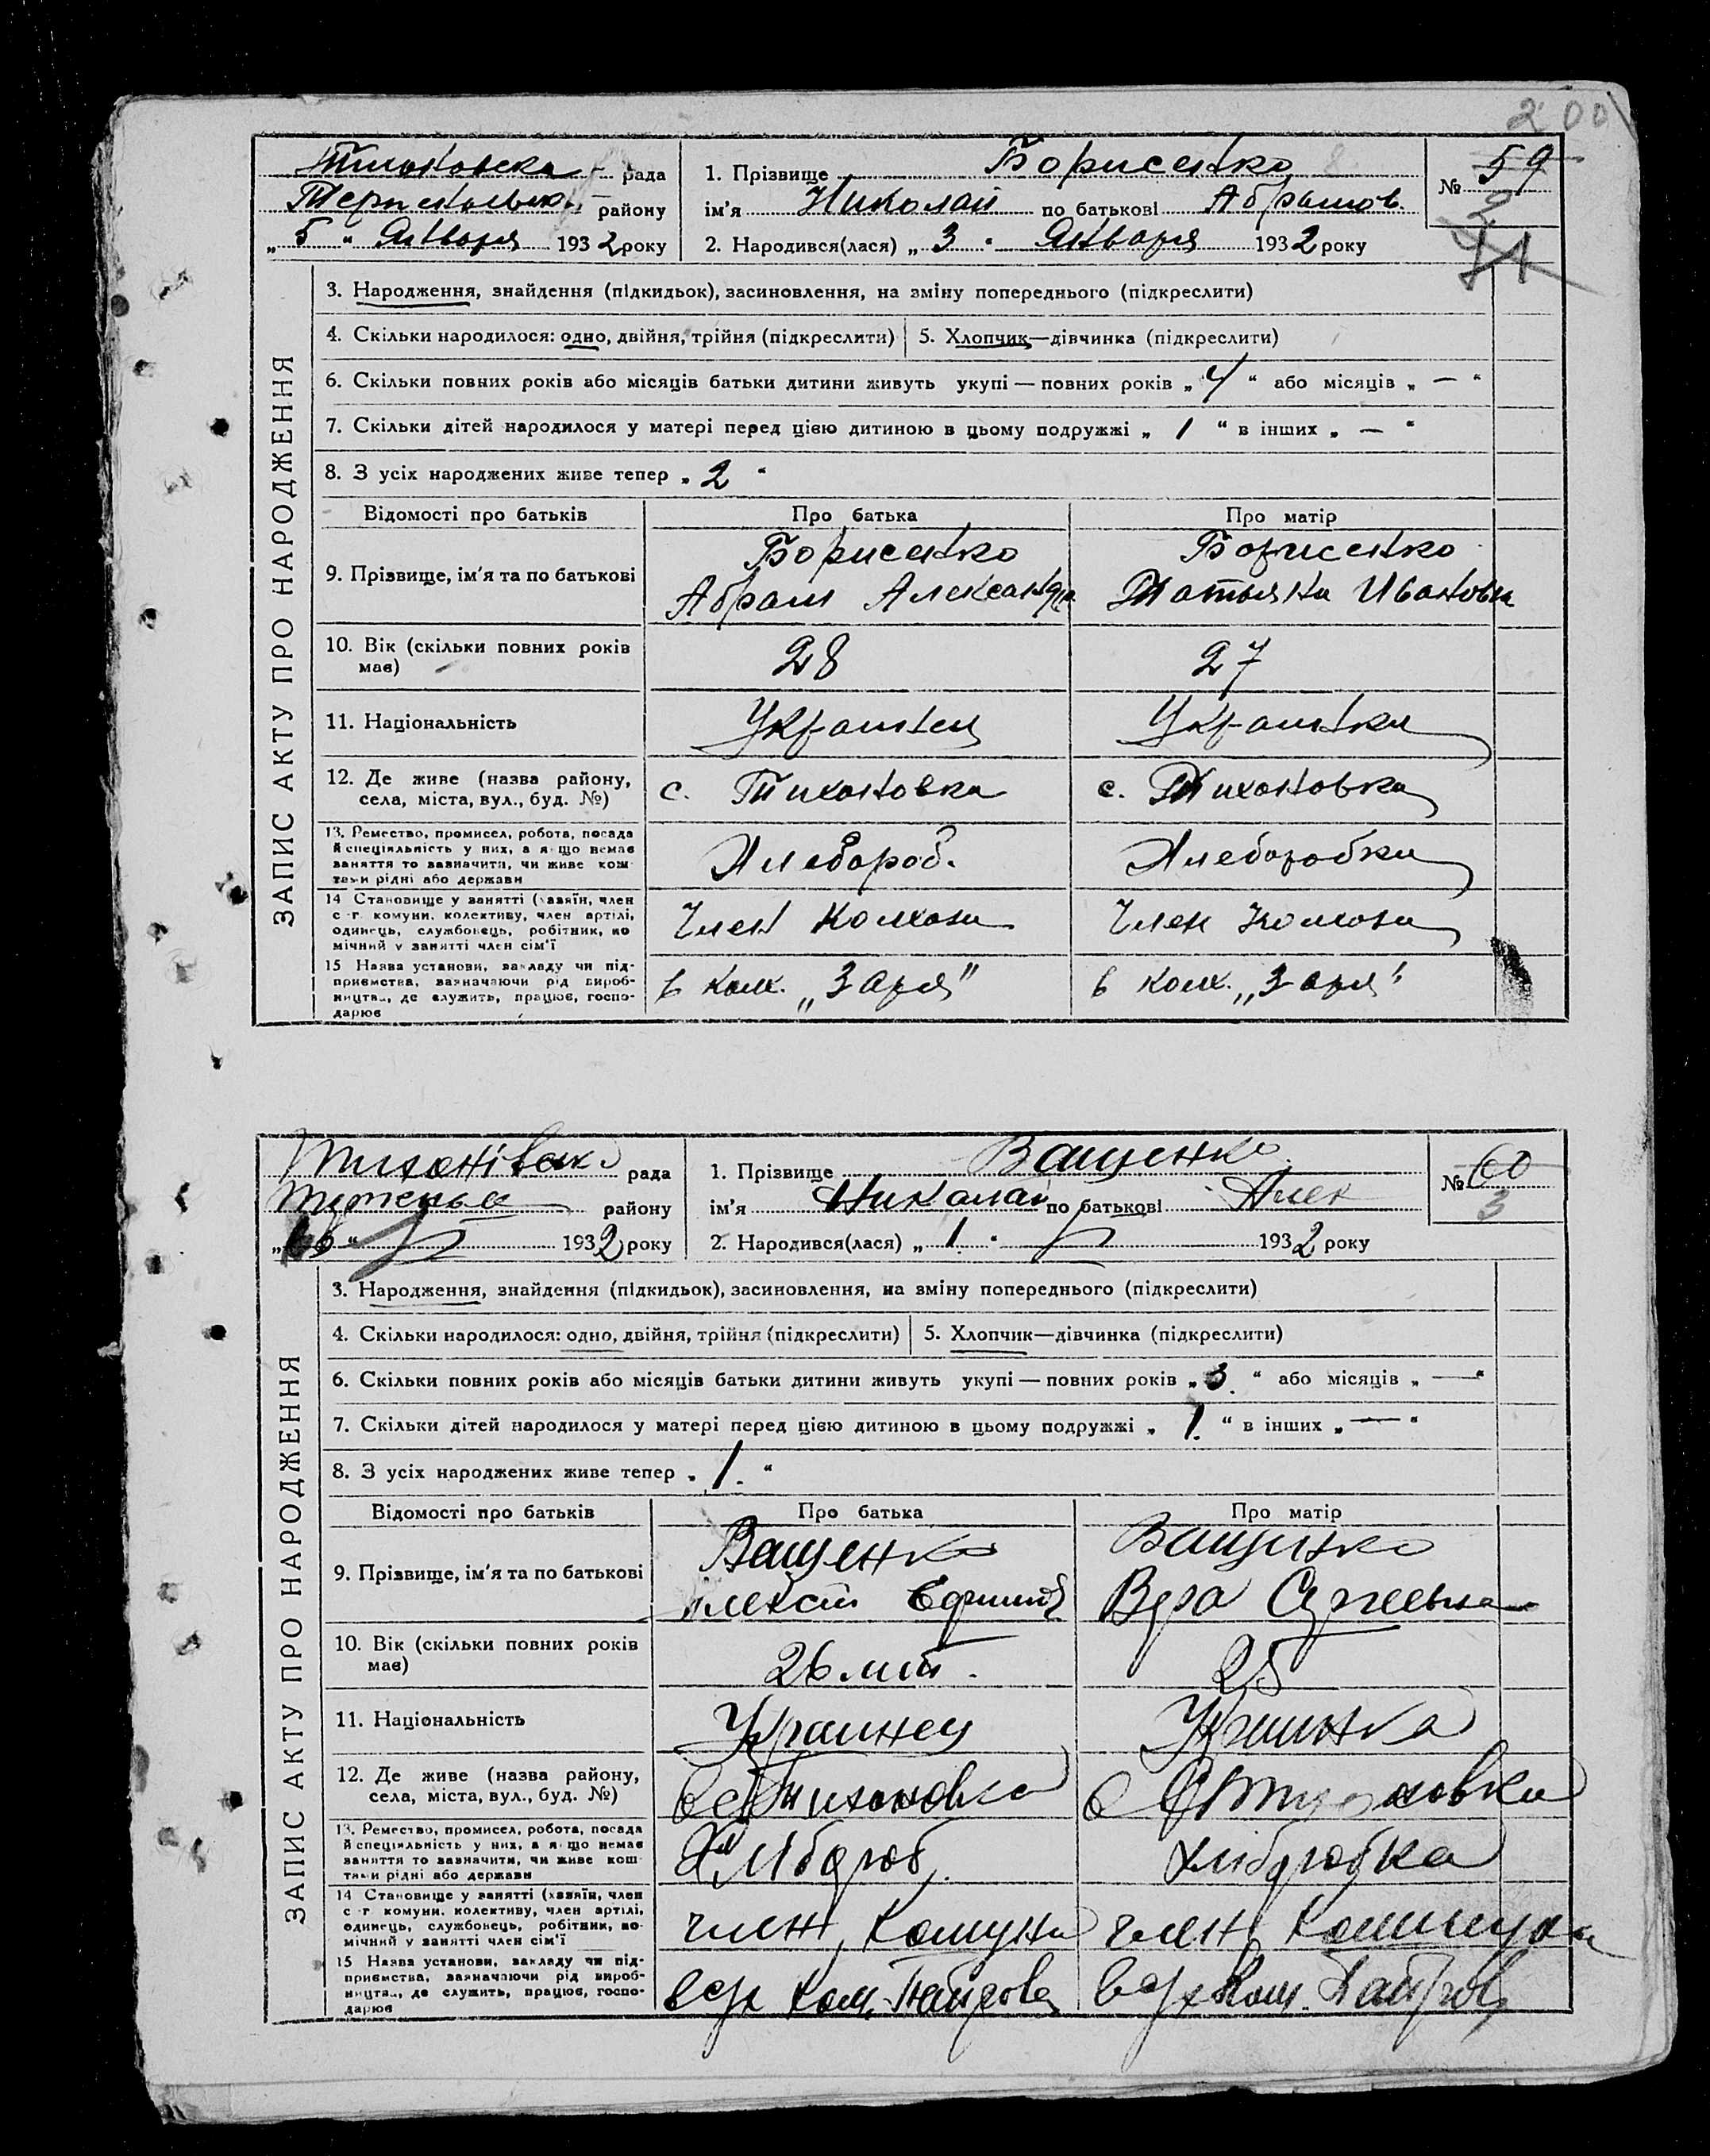 200
Тихоновска рада
района
"5" Января 1932 року
1. Прізвище Борисенко
ім'я Николай по батькові Абрамов.
2. Народився(лася) „3" Января 1932 року
№ 59
2
71
ЗАПИС АКТУ ПРО НАРОДЖЕННЯ
3. Народження, знайдення (підкидьок), засиновлення, на зміну попереднього (підкреслити)
4. Скільки народилося: одно, двійня, трійня (підкреслити) 5. Хлопчик—дівчинка (підкреслити)
6. Скільки повних років або місяців батьки дитини живуть укупі — повних років „4" або місяців „—"
7. Скільки дітей народилося у матері перед цією дитиною в цьому подружжі „1" в інших „—"
8. З усіх народжених живе тепер „2"
Відомості про батьків Про батька Про матір
9. Прізвище, ім'я та по батькові Борисенко Борисенко
Абрам Александр Татьяна Ивановна
10. Вік (скільки повних років має) 28 27
11. Національність Украинец Украинка
12. Де живе (назва району, с. Тихоновка с. Тихоновка
села, міста, вул., буд. №)
13. Ремество, промисел, робота, посада
й спеціяльність у них, а якщо немає Хлебороб. Хлеборобка
заняття то зазначити, чи живе кош-
тами рідні або держави
14 Становище у занятті (хазяїн, член
с.-г. комуни, колективу, член артілі, Член Колхоза Член Колхоза
одинець, службовець, робітник, по-
мічний у занятті член сім'ї
15 Назва установи, закладу чи під-
приємства, зазначаючи рід вироб- в колх. „Заря" в колх. „Заря"
ництва, де служить, працює, госпо-
дарює
Тихонівська рада
району
1932 року
1. Прізвище Ващенко
ім'я Николай по батькові Алек
2. Народився(лася) „1" 1932 року
№ 60
3
ЗАПИС АКТУ ПРО НАРОДЖЕННЯ
3. Народження, знайдення (підкидьок), засиновлення, на зміну попереднього (підкреслити)
4. Скільки народилося: одно, двійня, трійня (підкреслити) 5. Хлопчик—дівчинка (підкреслити)
6. Скільки повних років або місяців батьки дитини живуть укупі — повних років „3." або місяців „—"
7. Скільки дітей народилося у матері перед цією дитиною в цьому подружжі „1." в інших „—"
8. З усіх народжених живе тепер „1."
Відомості про батьків Про батька Про матір
9. Прізвище, ім'я та по батькові Ващенко Ващенко
Вера Сергеевна
10. Вік (скільки повних років має) 26 лет. 25
11. Національність Украинец Украинка
12. Де живе (назва району, Тихоновка
села, міста, вул., буд. №)
13. Ремество, промисел, робота, посада
й спеціяльність у них, а якщо немає Хлібороб. хліборобка
заняття то зазначити, чи живе кош-
тами рідні або держави
14 Становище у занятті (хазяїн, член
с.-г. комуни, колективу, член артілі, член Комуни член Коммуны
одинець, службовець, робітник, по-
мічний у занятті член сім'ї
15 Назва установи, закладу чи під-
приємства, зазначаючи рід вироб-
ництва, де служить, працює, госпо-
дарює